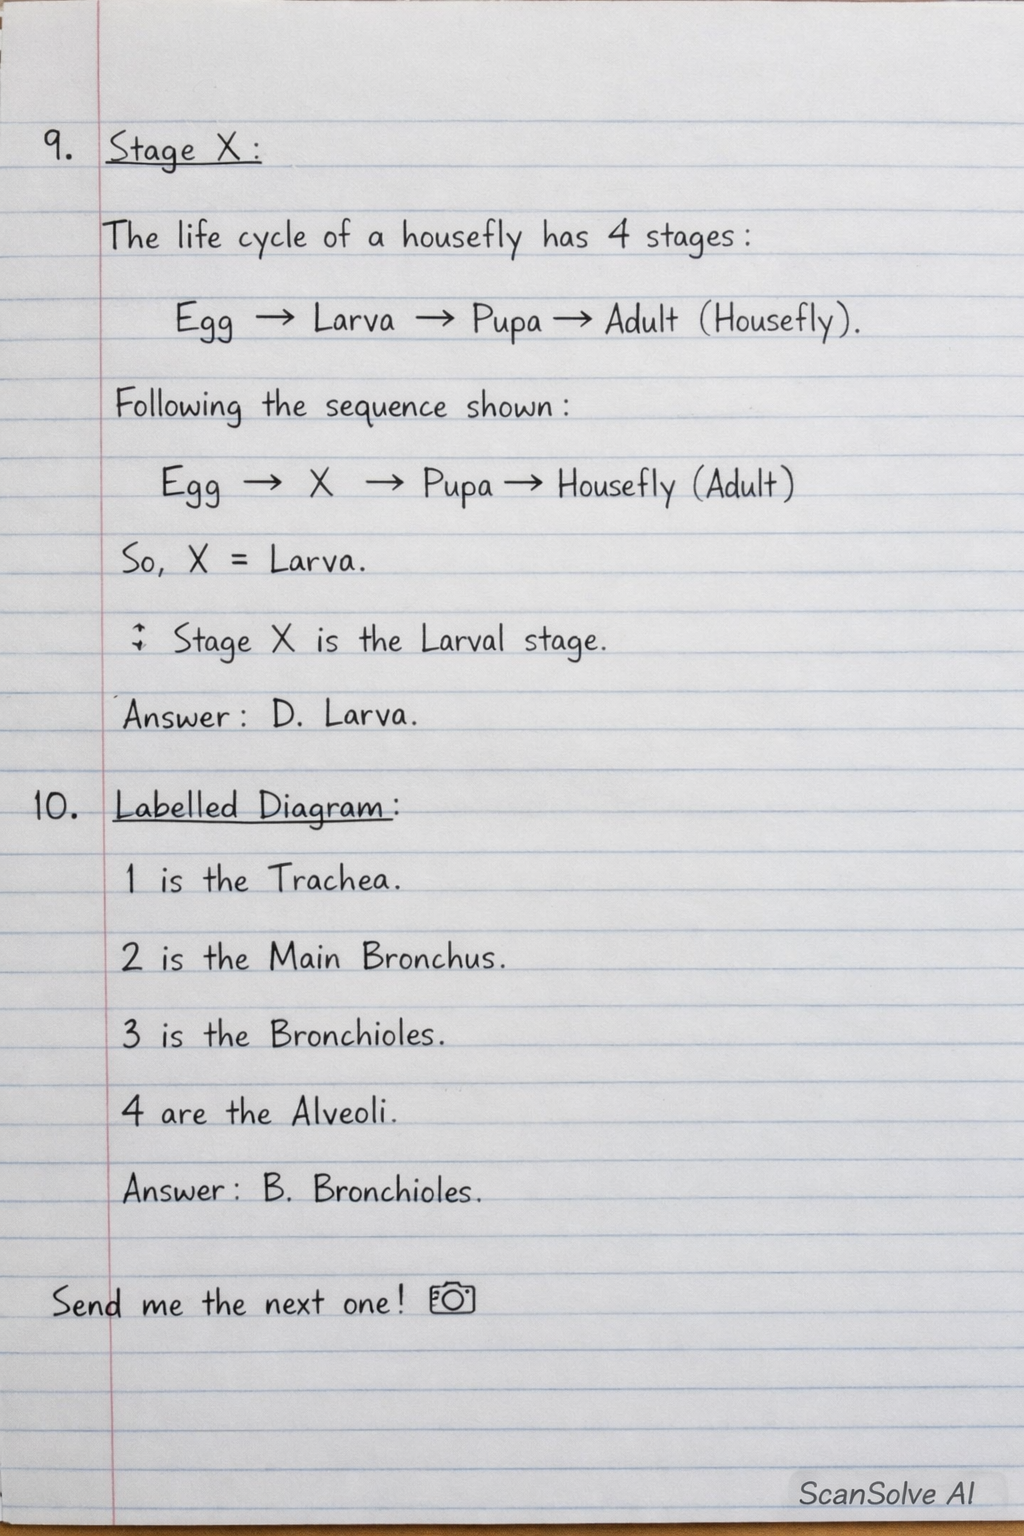 9. Stage X:
The life cycle of a housefly has 4 stages:
Egg → Larva → Pupa → Adult (Housefly).
Following the sequence shown:
Egg → X → Pupa → Housefly (Adult)
So, X = Larva.
Stage X is the Larval stage.
Answer: D. Larva.
10. Labelled Diagram:
1 is the Trachea.
2 is the Main Bronchus.
3 is the Bronchioles.
4 are the Alveoli.
Answer: B. Bronchioles.
Send me the next one!
ScanSolve AI